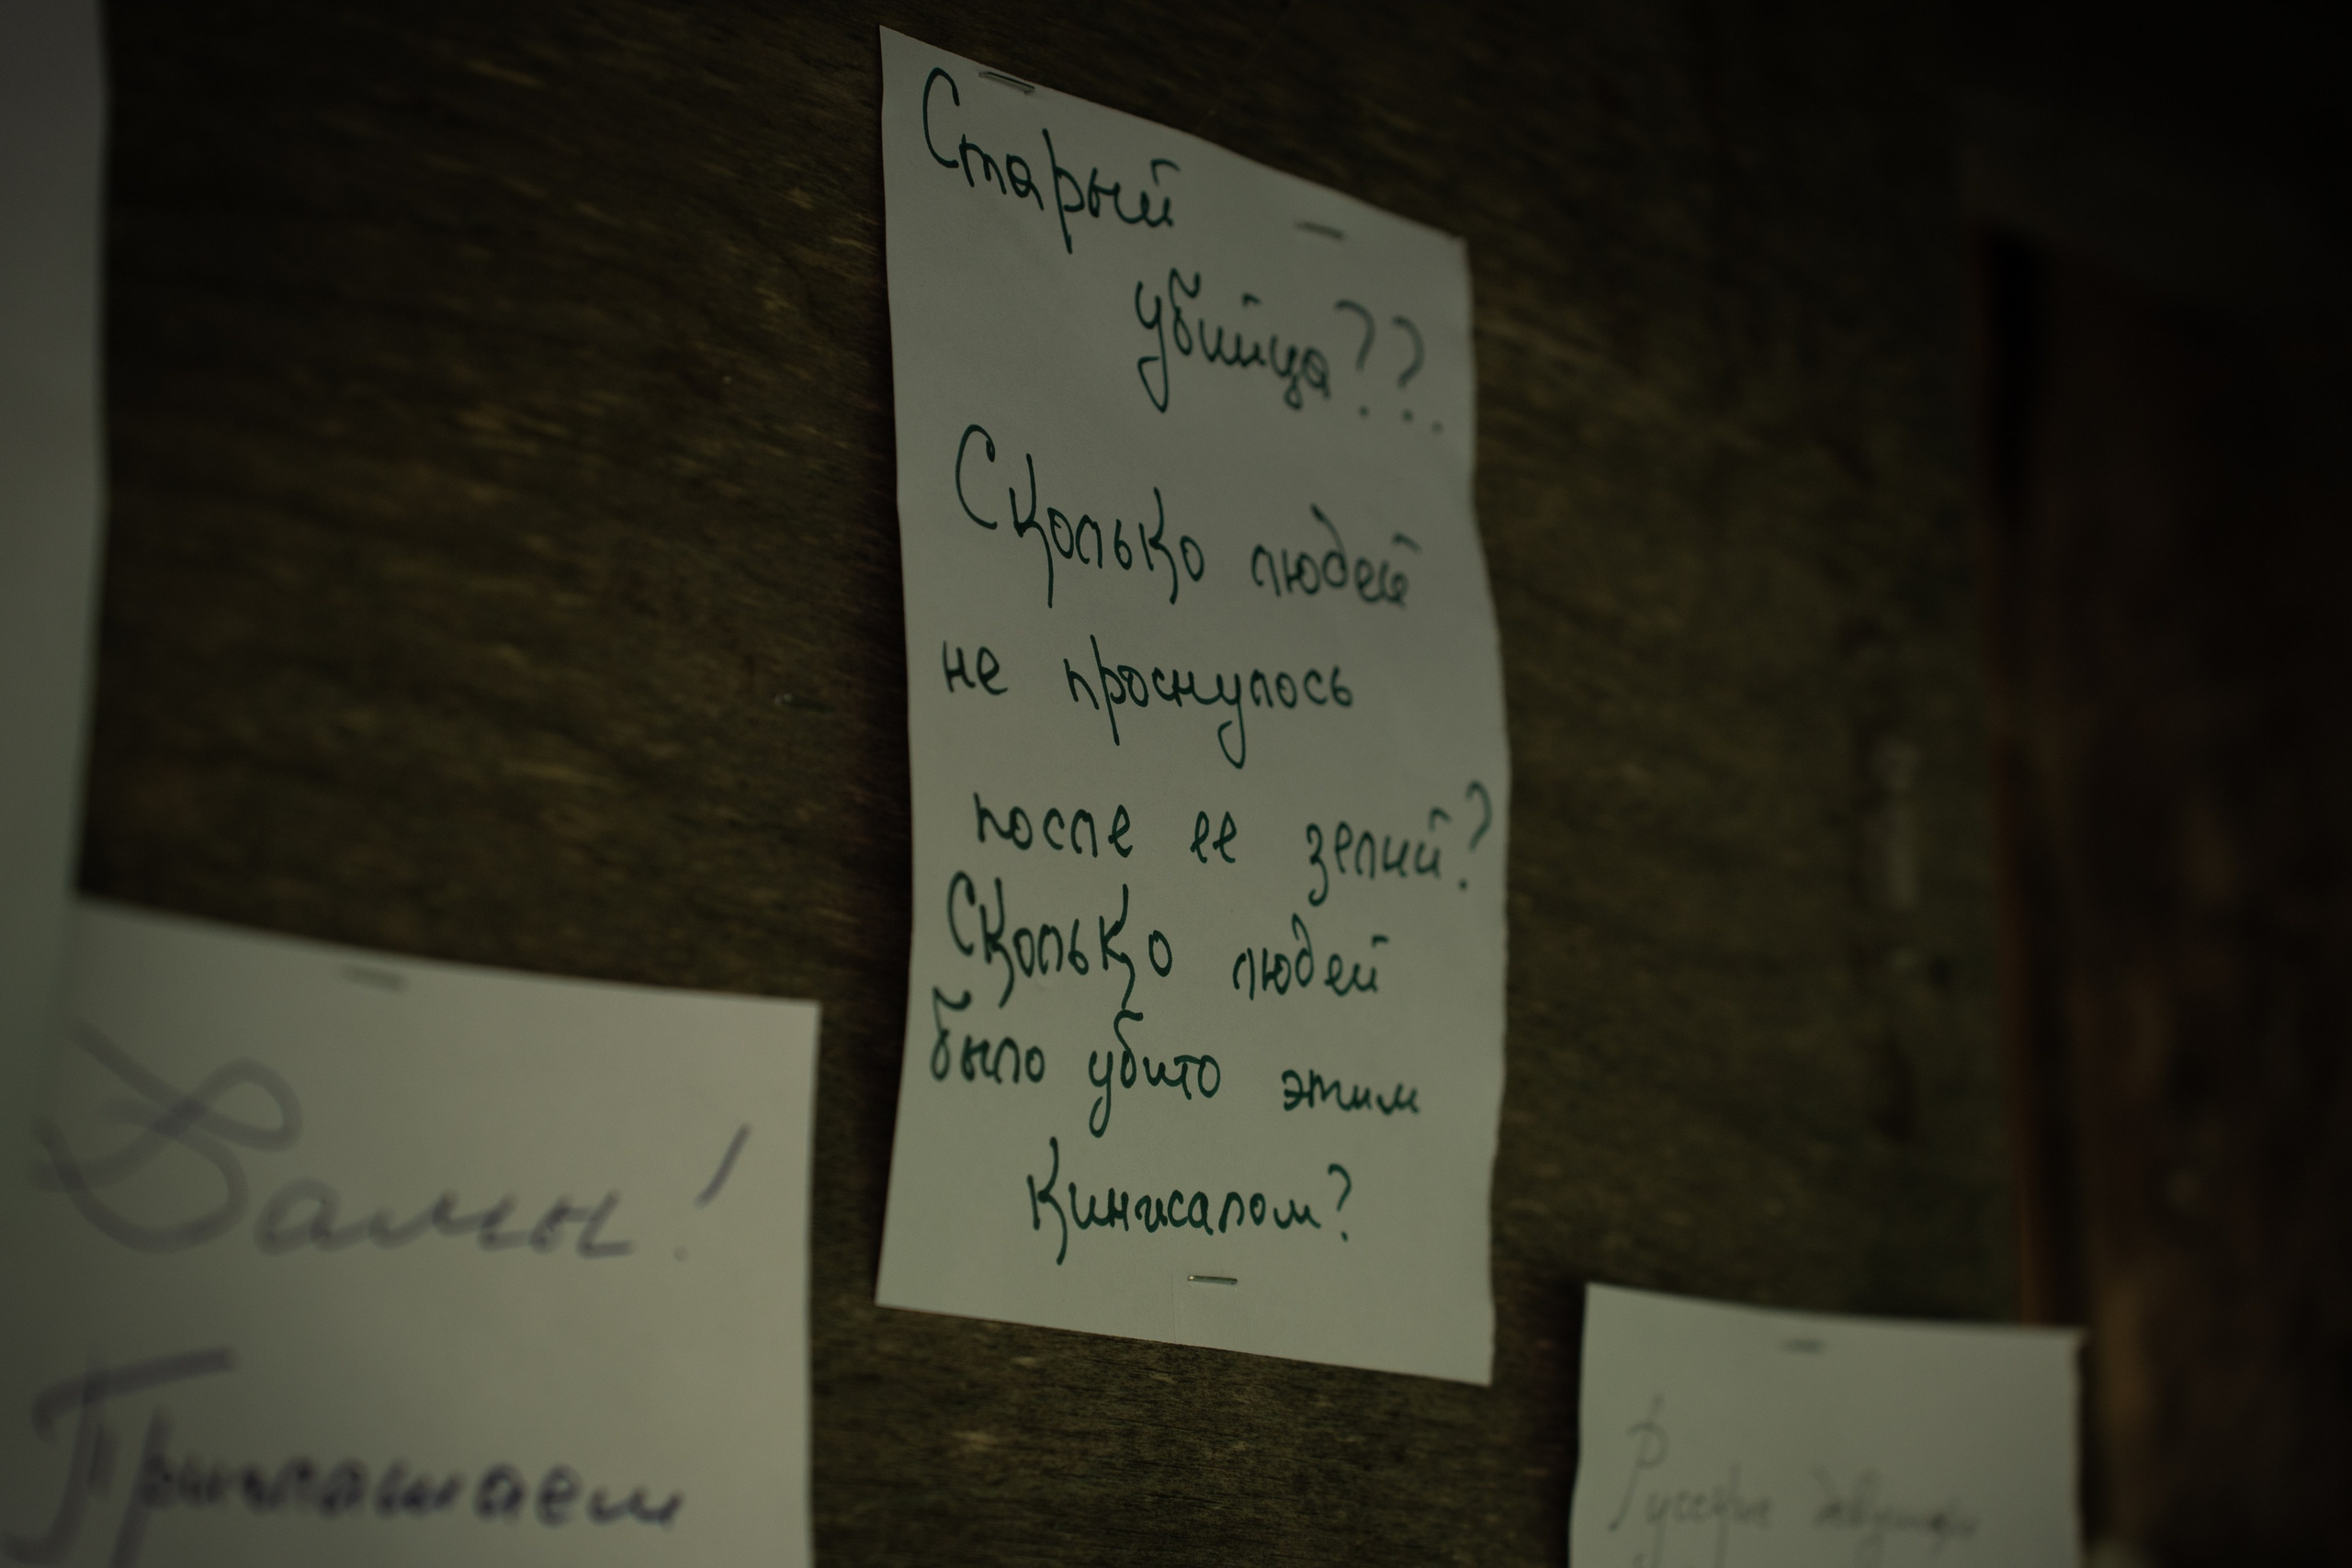 Старый
убийца???
Сколько людей
не проснулось
после ее зелий?
Сколько людей
было убито этим
Кинжалом?
Дамы!
Приглашаем
Русские девушки